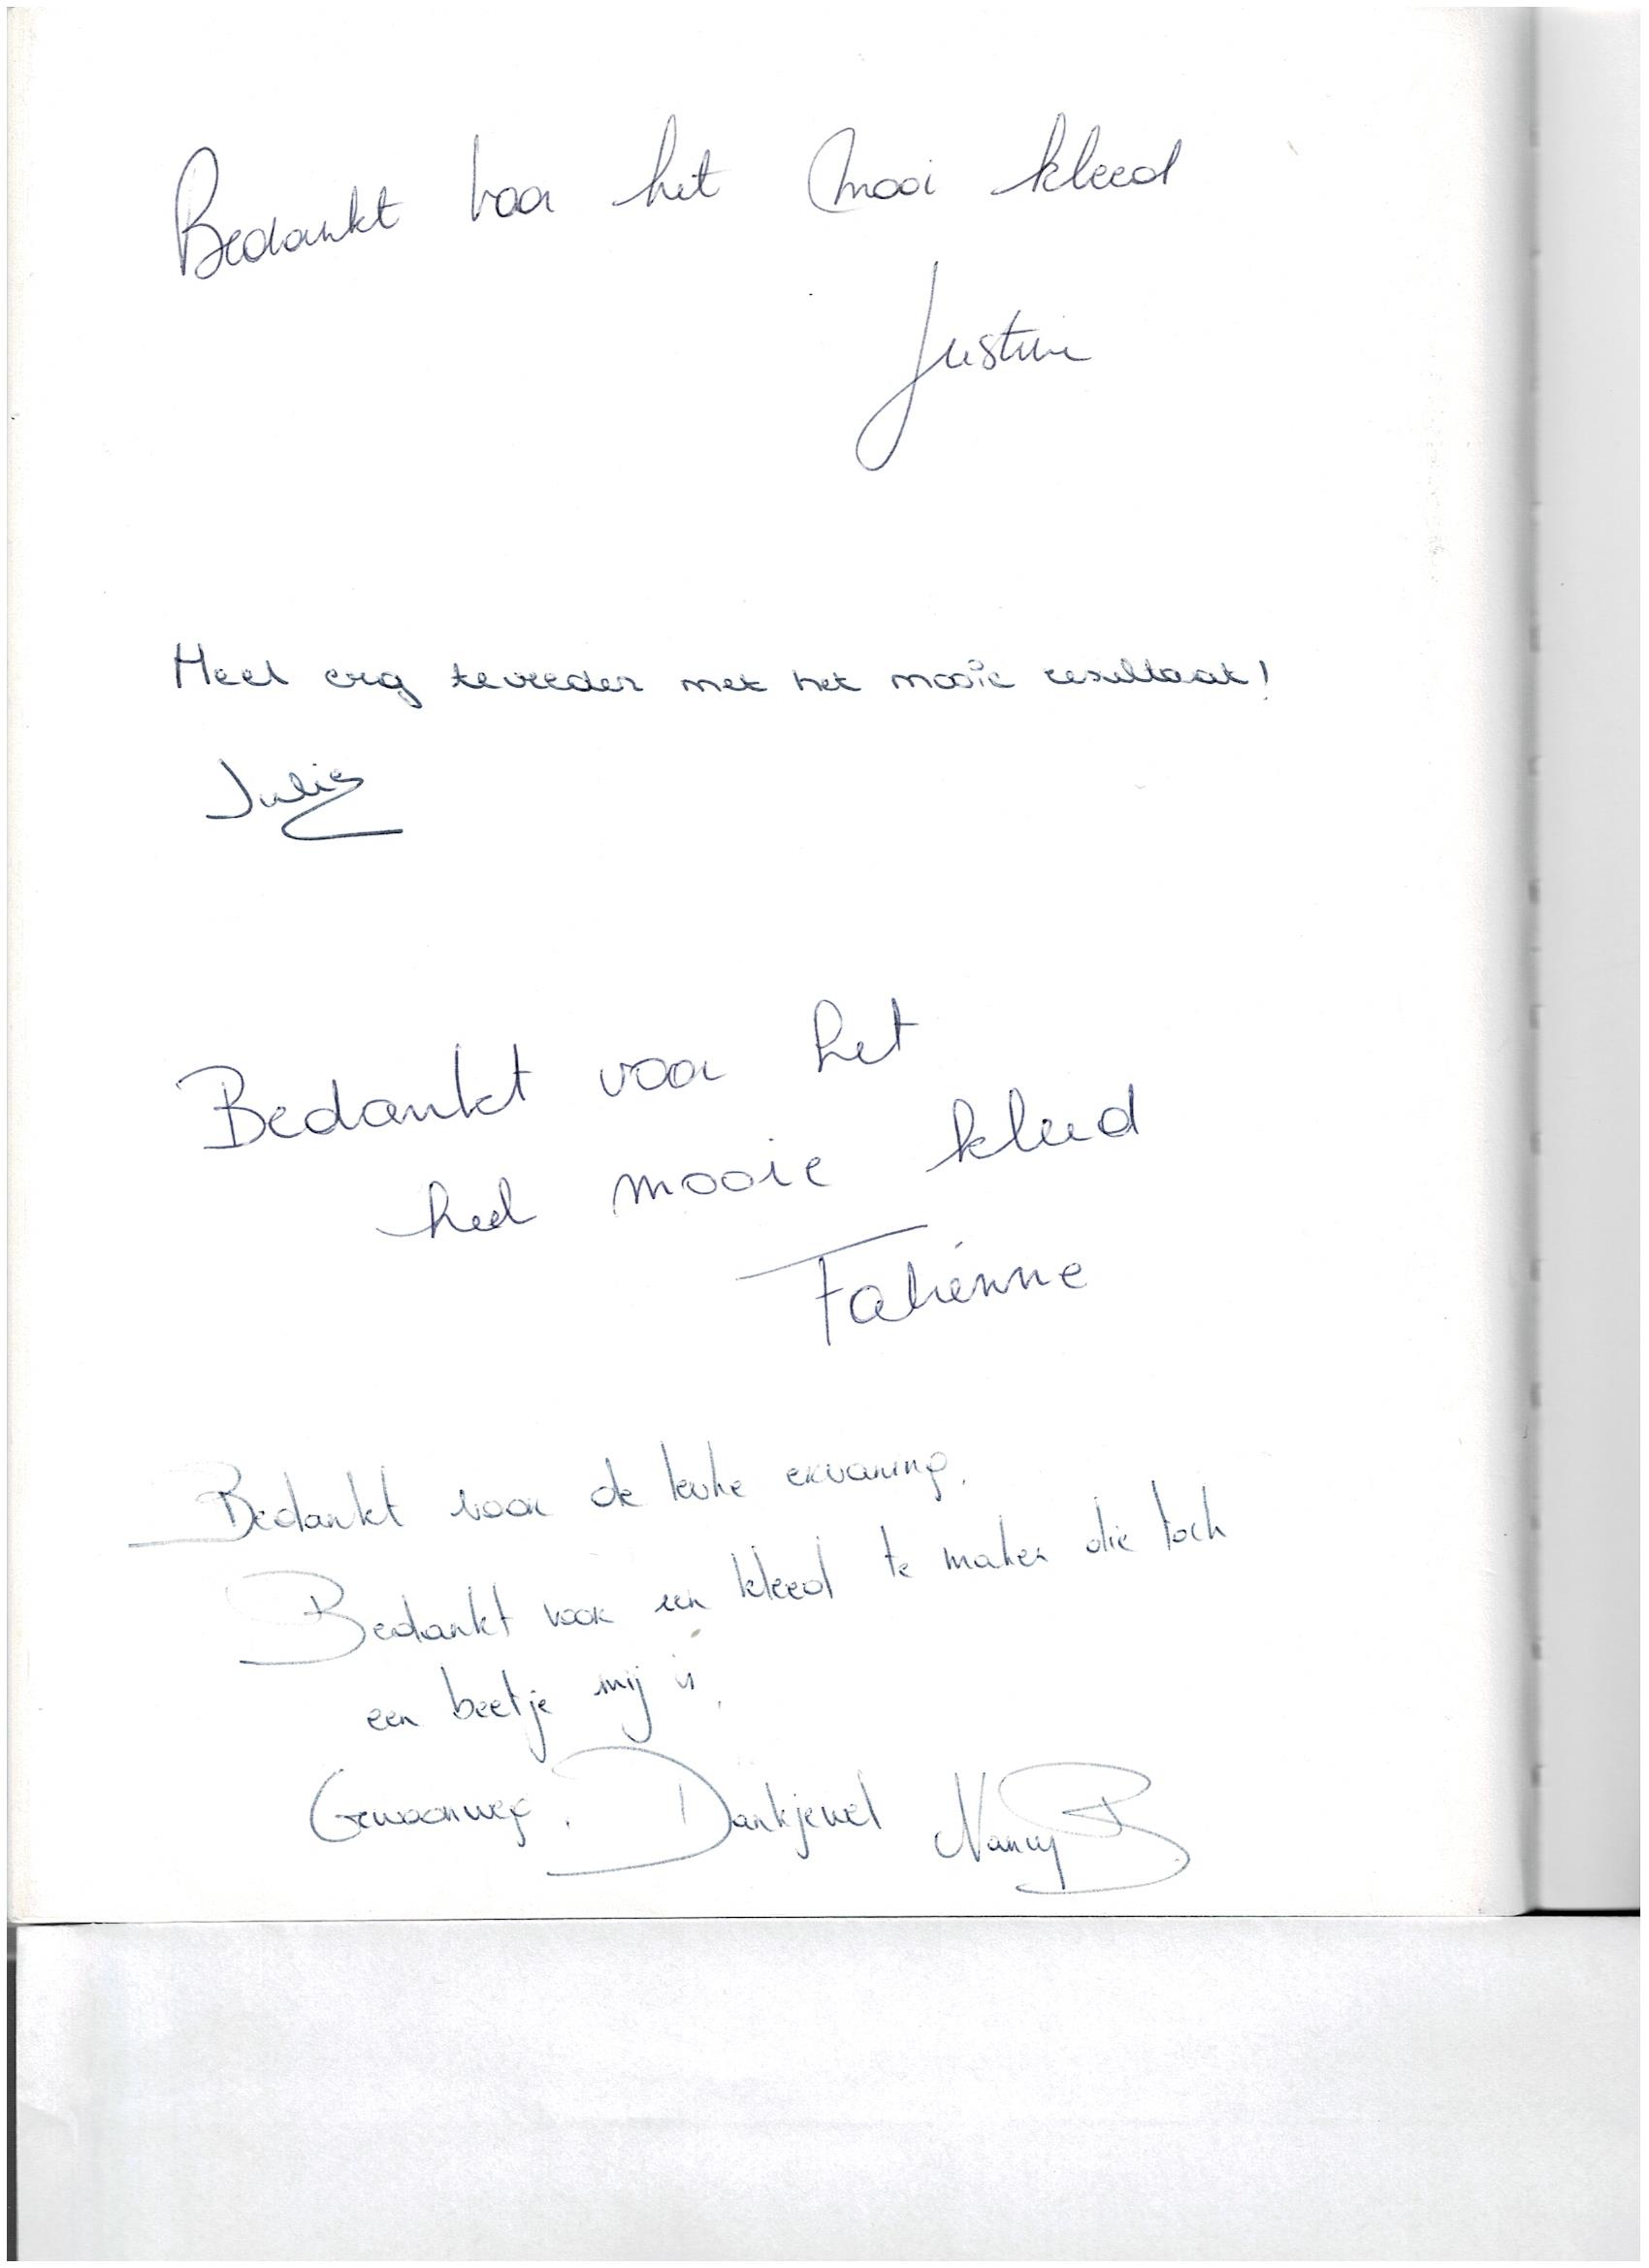 Bedankt voor het mooi kleed
Justine
Heel erg tevreden met het mooie resultaat!
Julie
Bedankt voor het
heel mooie kleed
Fabienne
Bedankt voor de leuke ervaring.
Bedankt voor een kleed te maken die toch
een beetje mij is.
Gewoonweg. Dankjewel Nancy B